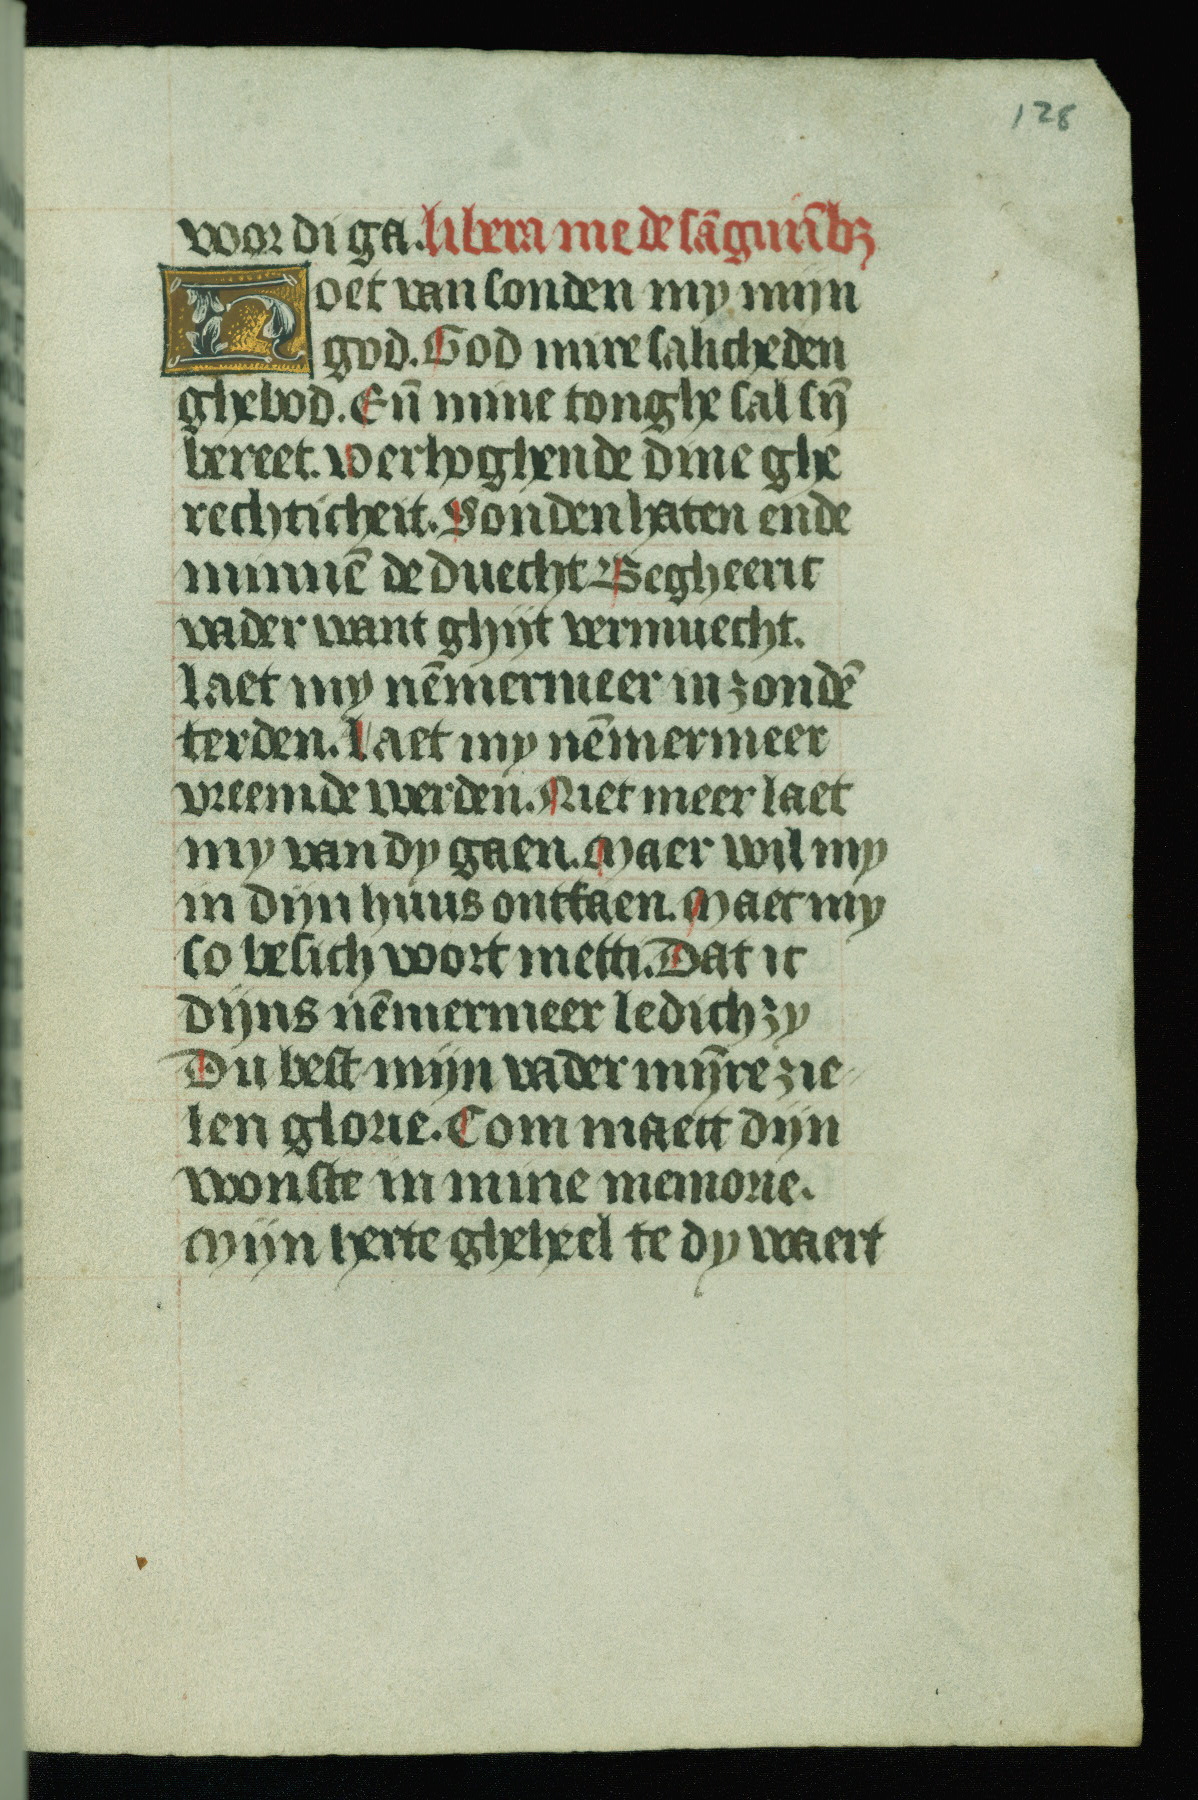 128
wordiga. libera me de sāguinībꝫ
Hoet van sonden my mijn
god. God mire salicheden
ghebod. En̄ mine tonghe sal sȳ
bereet. verhoghende dine ghe
rechticheit. Sonden haten ende
minnē de duecht Begheeric
vader want ghijt vermuecht.
laet my nēmermeer in zondē
terden. laet my nēmermeer
vreemde werden. Niet meer laet
my van dy gaen. Maer wil my
in dijn huus ontfaen. Maect my
so besich wort metti. Dat ic
dijns nēmermeer ledich zy
Du best mijn vader mȳre zie
len glorie. Com maect dijn
wonste in mine memorie.
Mijn herte gheheel te dy waert